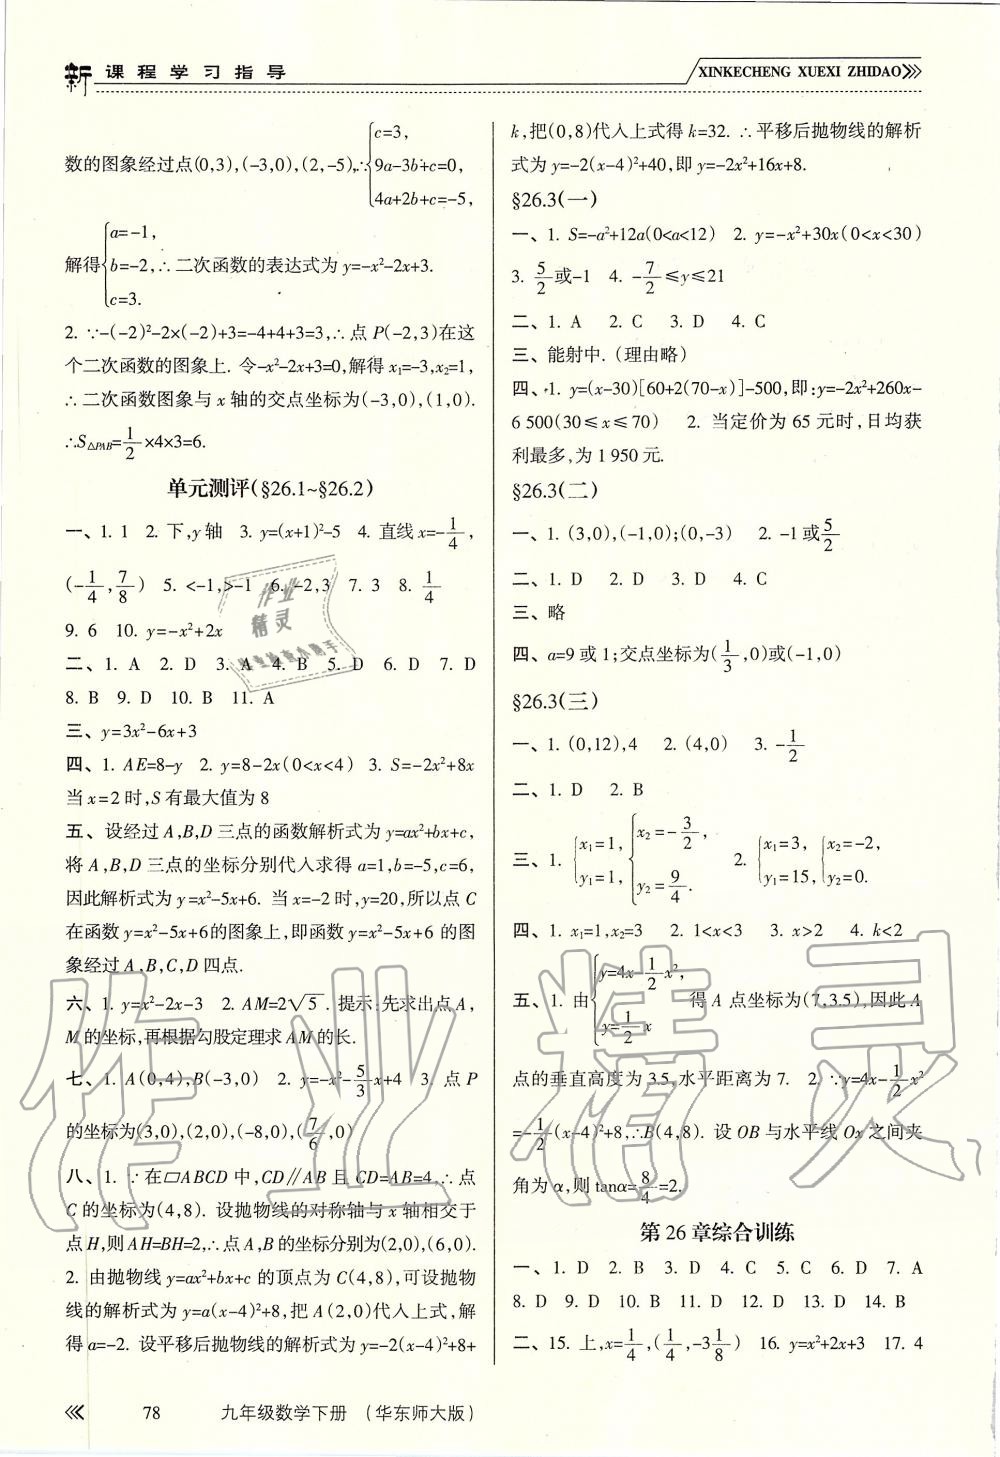 新课程学习指导
XINKECHENG XUEXI ZHIDAO
数的图象经过点(0,3),(-3,0),(2,-5),∴{c=3, 9a-3b+c=0, 4a+2b+c=-5,
解得{a=-1, b=-2, c=3. ∴二次函数的表达式为y=-x²-2x+3.
2. ∵-(-2)²-2×(-2)+3=-4+4+3=3,∴点P(-2,3)在这
个二次函数的图象上. 令-x²-2x+3=0,解得x₁=-3,x₂=1,
∴二次函数图象与x轴的交点坐标为(-3,0),(1,0).
∴S△PAB=1/2×4×3=6.
单元测评(§26.1~§26.2)
一、1. 1 2. 下,y轴 3. y=(x+1)²-5 4. 直线x=-1/4,
(-1/4,7/8) 5. <-1,>-1 6. -2,3 7. 3 8. 1/4
9. 6 10. y=-x²+2x
二、1. A 2. D 3. A 4. B 5. D 6. D 7. D
8. B 9. D 10. B 11. A
三、y=3x²-6x+3
四、1. AE=8-y 2. y=8-2x(0<x<4) 3. S=-2x²+8x
当x=2时,S有最大值为8
五、设经过A,B,D三点的函数解析式为y=ax²+bx+c,
将A,B,D三点的坐标分别代入求得a=1,b=-5,c=6,
因此解析式为y=x²-5x+6. 当x=-2时,y=20,所以点C
在函数y=x²-5x+6的图象上,即函数y=x²-5x+6的图
象经过A,B,C,D四点.
六、1. y=x²-2x-3 2. AM=2√5. 提示:先求出点A,
M的坐标,再根据勾股定理求AM的长.
七、1. A(0,4),B(-3,0) 2. y=-x²-5/3x+4 3. 点P
的坐标为(3,0),(2,0),(-8,0),(7/6,0)
八、1. ∵在▱ABCD中,CD∥AB且CD=AB=4,∴点
C的坐标为(4,8). 设抛物线的对称轴与x轴相交于
点H,则AH=BH=2,∴点A,B的坐标分别为(2,0),(6,0).
2. 由抛物线y=ax²+bx+c的顶点为C(4,8),可设抛物
线的解析式为y=a(x-4)²+8,把A(2,0)代入上式,解
得a=-2. 设平移后抛物线的解析式为y=-2(x-4)²+8+
k,把(0,8)代入上式得k=32. ∴平移后抛物线的解析
式为y=-2(x-4)²+40,即y=-2x²+16x+8.
§26.3(一)
一、1. S=-a²+12a(0<a<12) 2. y=-x²+30x(0<x<30)
3. 5/2或-1 4. -7/2≤y≤21
二、1. A 2. C 3. D 4. C
三、能射中.(理由略)
四、1. y=(x-30)[60+2(70-x)]-500,即:y=-2x²+260x-
6 500(30≤x≤70) 2. 当定价为65元时,日均获
利最多,为1 950元.
§26.3(二)
一、1. (3,0),(-1,0);(0,-3) 2. -1或5/2
二、1. D 2. D 3. D 4. C
三、略
四、a=9或1;交点坐标为(1/3,0)或(-1,0)
§26.3(三)
一、1. (0,12),4 2. (4,0) 3. -1/2
二、1. D 2. B
三、1. {x₁=1, y₁=1, {x₂=-3/2, y₂=9/4. 2. {x₁=3, y₁=15, {x₂=-2, y₂=0.
四、1. x₁=1,x₂=3 2. 1<x<3 3. x>2 4. k<2
五、1. 由{y=4x-1/2x², y=1/2x 得A点坐标为(7,3.5),因此A
点的垂直高度为3.5,水平距离为7. 2. ∵y=4x-1/2x²
=-1/2(x-4)²+8,∴B(4,8). 设OB与水平线Ox之间夹
角为α,则tanα=8/4=2.
第26章综合训练
一、1. D 2. B 3. D 4. C 5. C 6. D 7. A
8. D 9. D 10. B 11. D 12. D 13. D 14. B
二、15. 上,x=1/4,(1/4,-3 1/8) 16. y=x²+2x+3 17. 4
78 九年级数学下册 (华东师大版)
作业精灵
作业
精灵